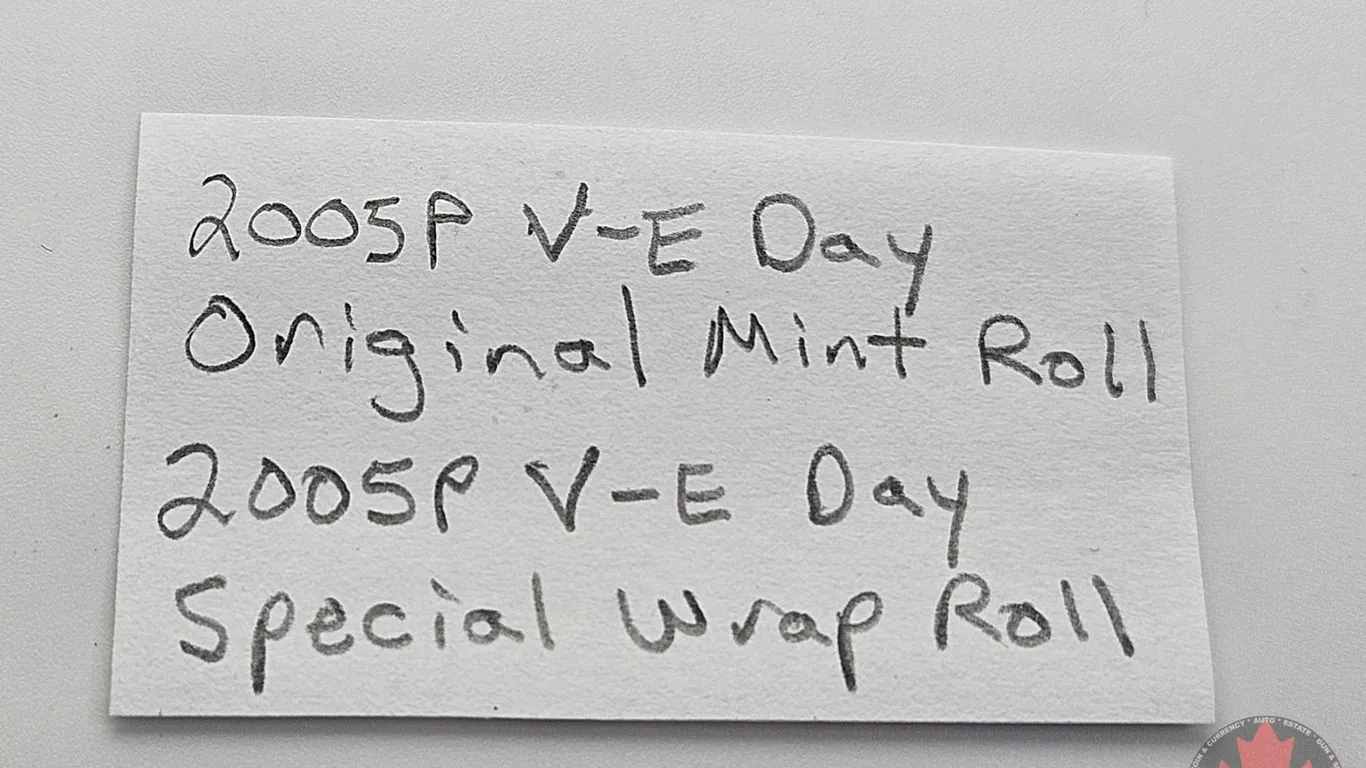 2005P V-E Day
Original Mint Roll
2005P V-E Day
Special Wrap Roll
COIN & CURRENCY · AUTO · ESTATE · GUN &